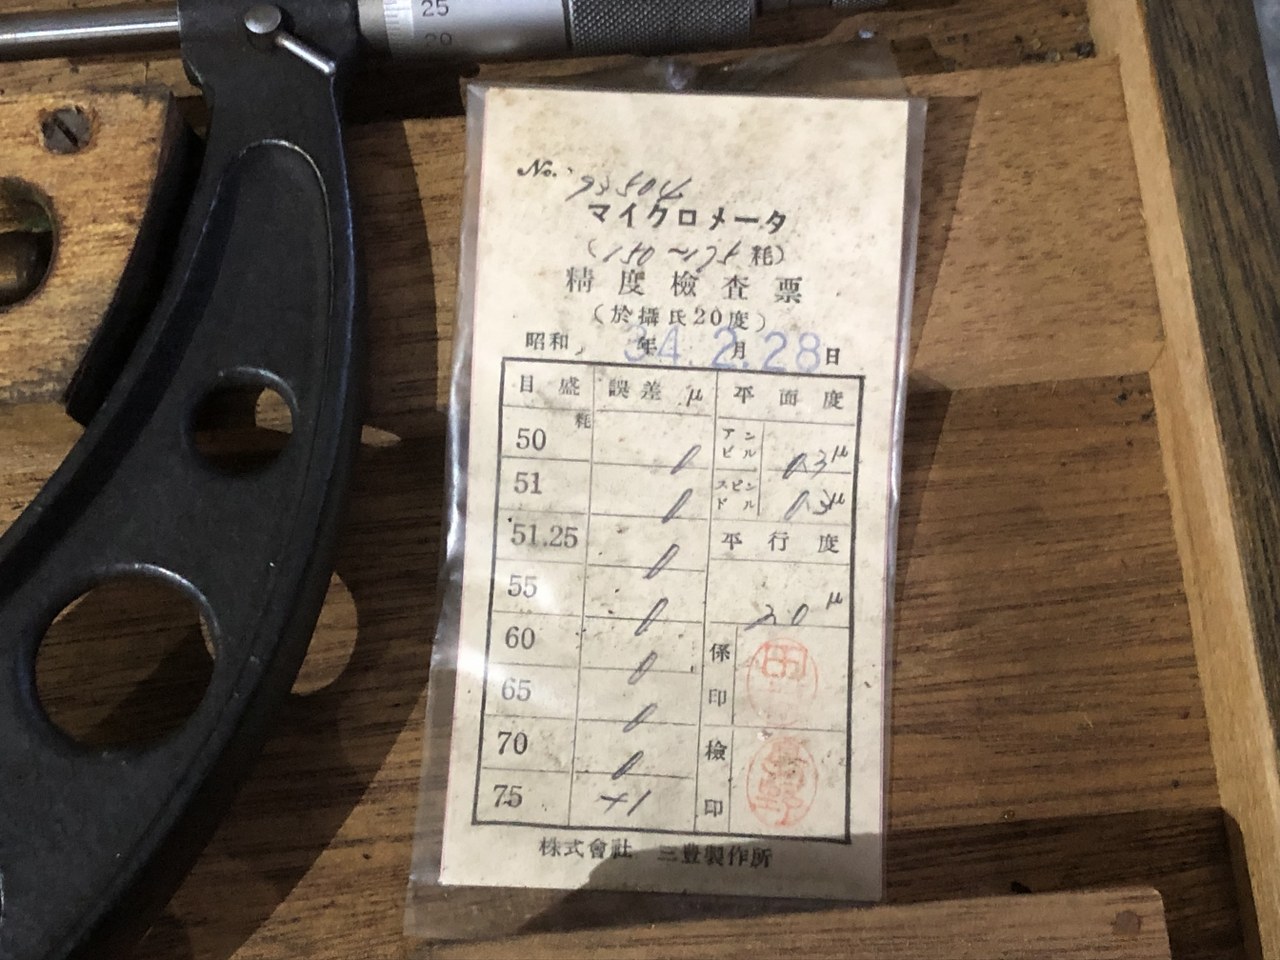 25
20
No. 93504
マイクロメータ
(150～175耗)
精度檢査票
(於攝氏20度)
昭和 34年 2.月 28日
目盛 誤差 μ 平面度
50 耗 0 アンビル 0.3μ
51 0 スピンドル 0.3μ
51.25 0 平行度
55 0 2.0 μ
60 0 係印
65 0
70 0 檢印
75 +1
株式會社 三豊製作所